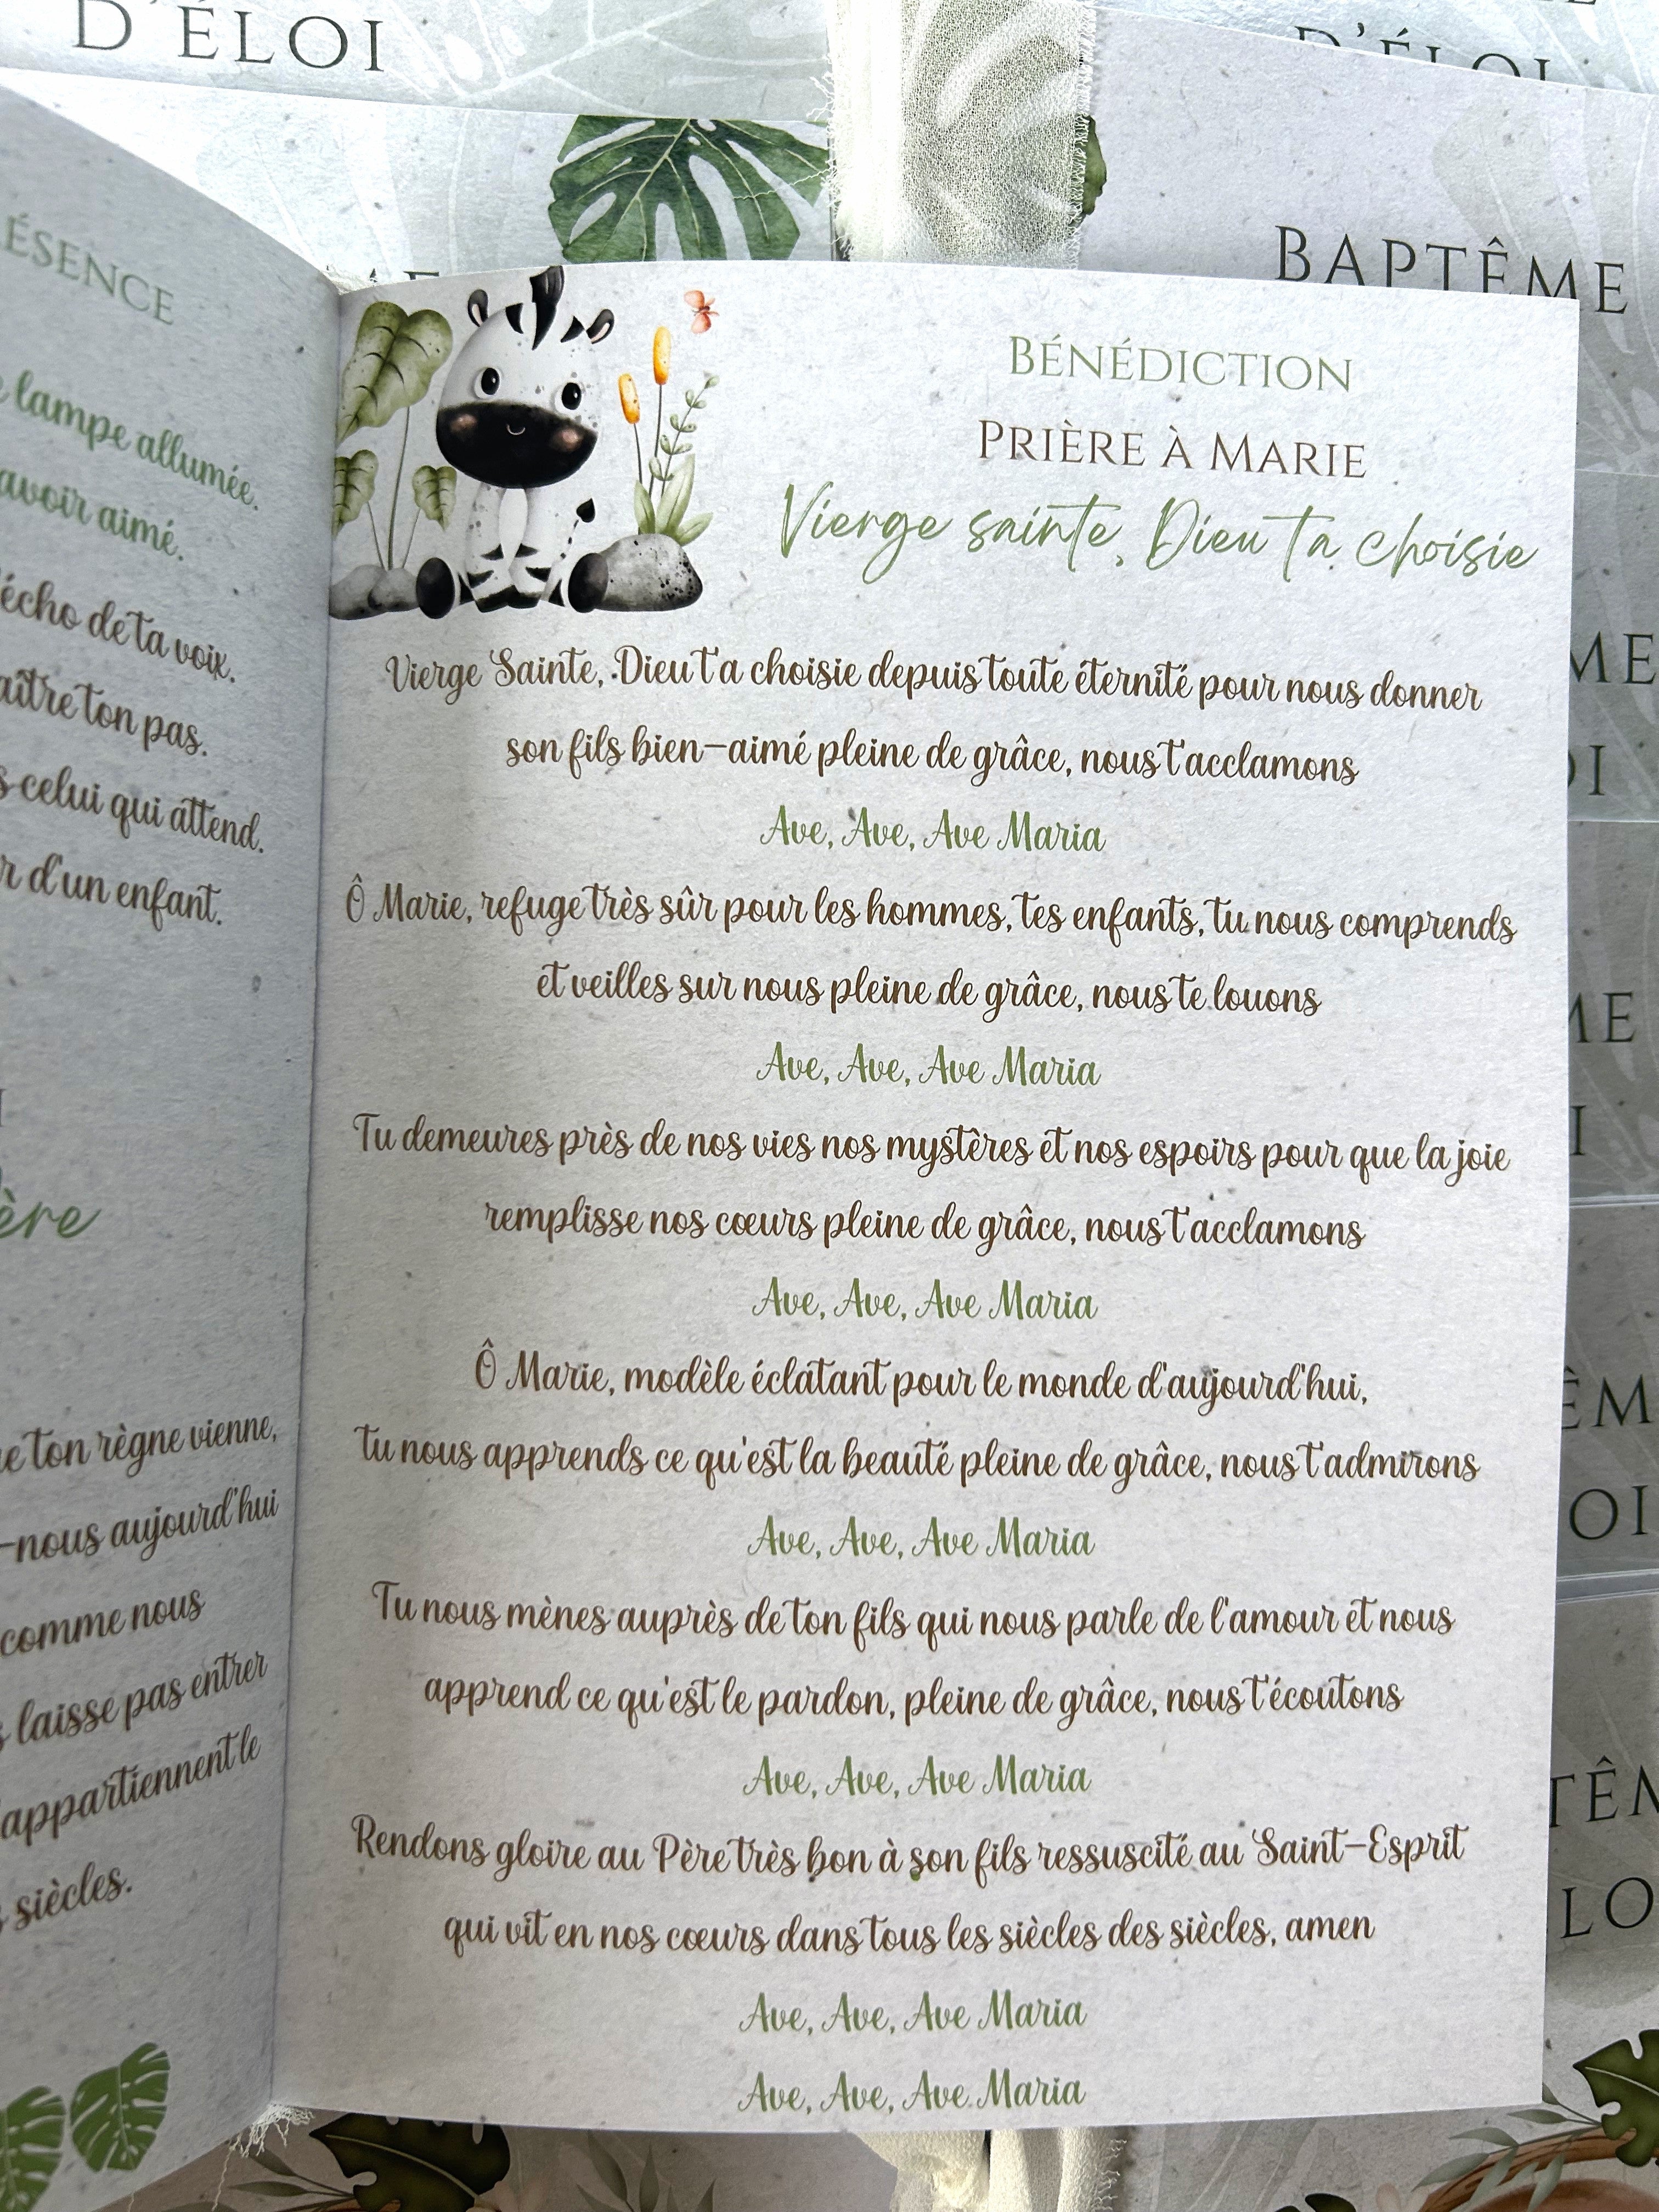 D'ÉLOI
D'ÉLOI
BAPTÊME
lampe allumée.
avoir aimé.
écho de ta voix.
ton pas.
celui qui attend.
d'un enfant.
ton règne vienne,
-nous aujourd'hui
comme nous
laisse pas entrer
appartiennent le
siècles.
BÉNÉDICTION
PRIÈRE À MARIE
Vierge sainte, Dieu t'a choisie
Vierge Sainte, Dieu t'a choisie depuis toute éternité pour nous donner
son fils bien-aimé pleine de grâce, nous t'acclamons
Ave, Ave, Ave Maria
Ô Marie, refuge très sûr pour les hommes, tes enfants, tu nous comprends
et veilles sur nous pleine de grâce, nous te louons
Ave, Ave, Ave Maria
Tu demeures près de nos vies nos mystères et nos espoirs pour que la joie
remplisse nos cœurs pleine de grâce, nous t'acclamons
Ave, Ave, Ave Maria
Ô Marie, modèle éclatant pour le monde d'aujourd'hui,
tu nous apprends ce qu'est la beauté pleine de grâce, nous t'admirons
Ave, Ave, Ave Maria
Tu nous mènes auprès de ton fils qui nous parle de l'amour et nous
apprend ce qu'est le pardon, pleine de grâce, nous t'écoutons
Ave, Ave, Ave Maria
Rendons gloire au Père très bon à son fils ressuscité au Saint-Esprit
qui vit en nos cœurs dans tous les siècles des siècles, amen
Ave, Ave, Ave Maria
Ave, Ave, Ave Maria